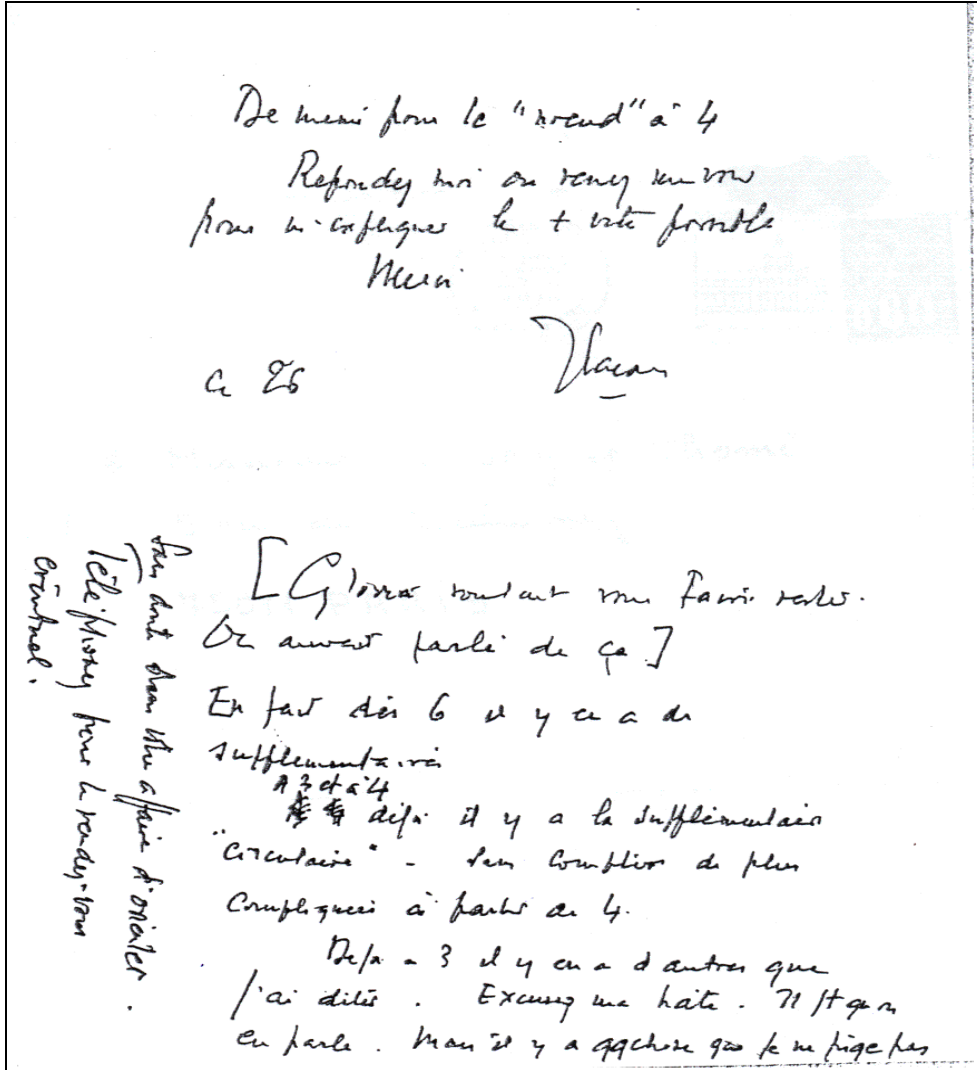 De même pour le "nœud" à 4
Répondez moi ou venez me voir
pour m'expliquer le + vite possible
Merci
Ce 26
JLacan
[Gloria voulait vous faire rester.
On aurait parlé de ça]
En fait dès 6 il y en a de
supplémentaires
A 3 et à 4
déjà il y a la supplémentaire
"circulaire" - sans compter de plus
compliquées à partir de 4.
Déjà à 3 il y en a d'autres que
j'ai dites. Excusez ma hâte. Il ft qu'on
en parle. Mais il y a qqchose que je ne pige pas
sans doute dans votre affaire d'orienter.
Téléphonez pour le rendez-vous
éventuel.